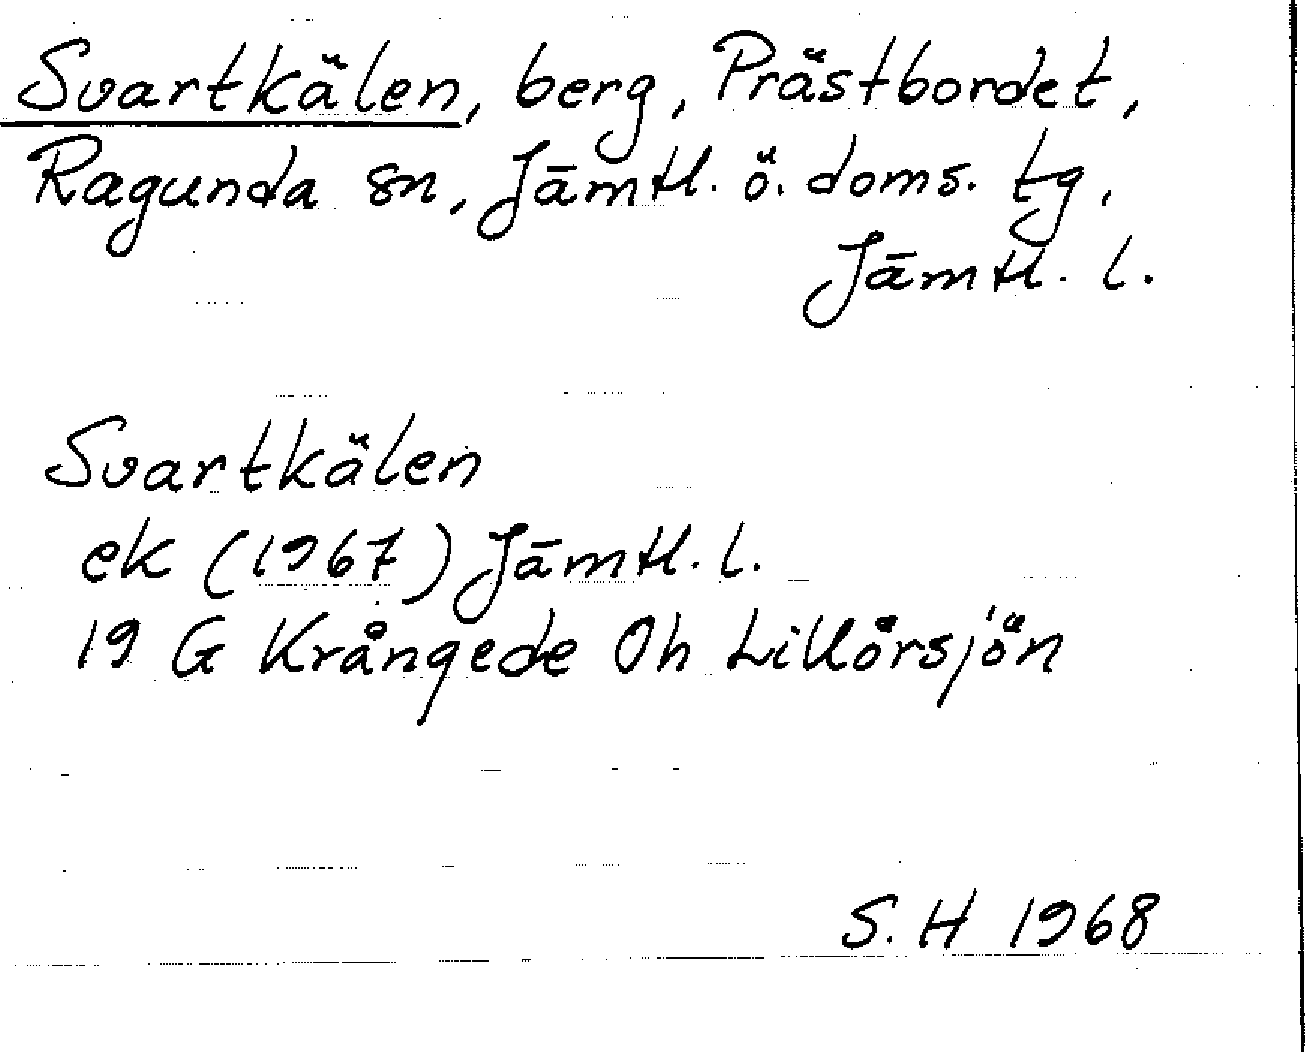 Svartkälen, berg, Prästbordet,
Ragunda sn, Jämtl. ö. doms. tg,
Jämtl. l.
Svartkälen
ek (1967) Jämtl. l.
19 G Krångede Oh Lillörsjön
S. H 1968